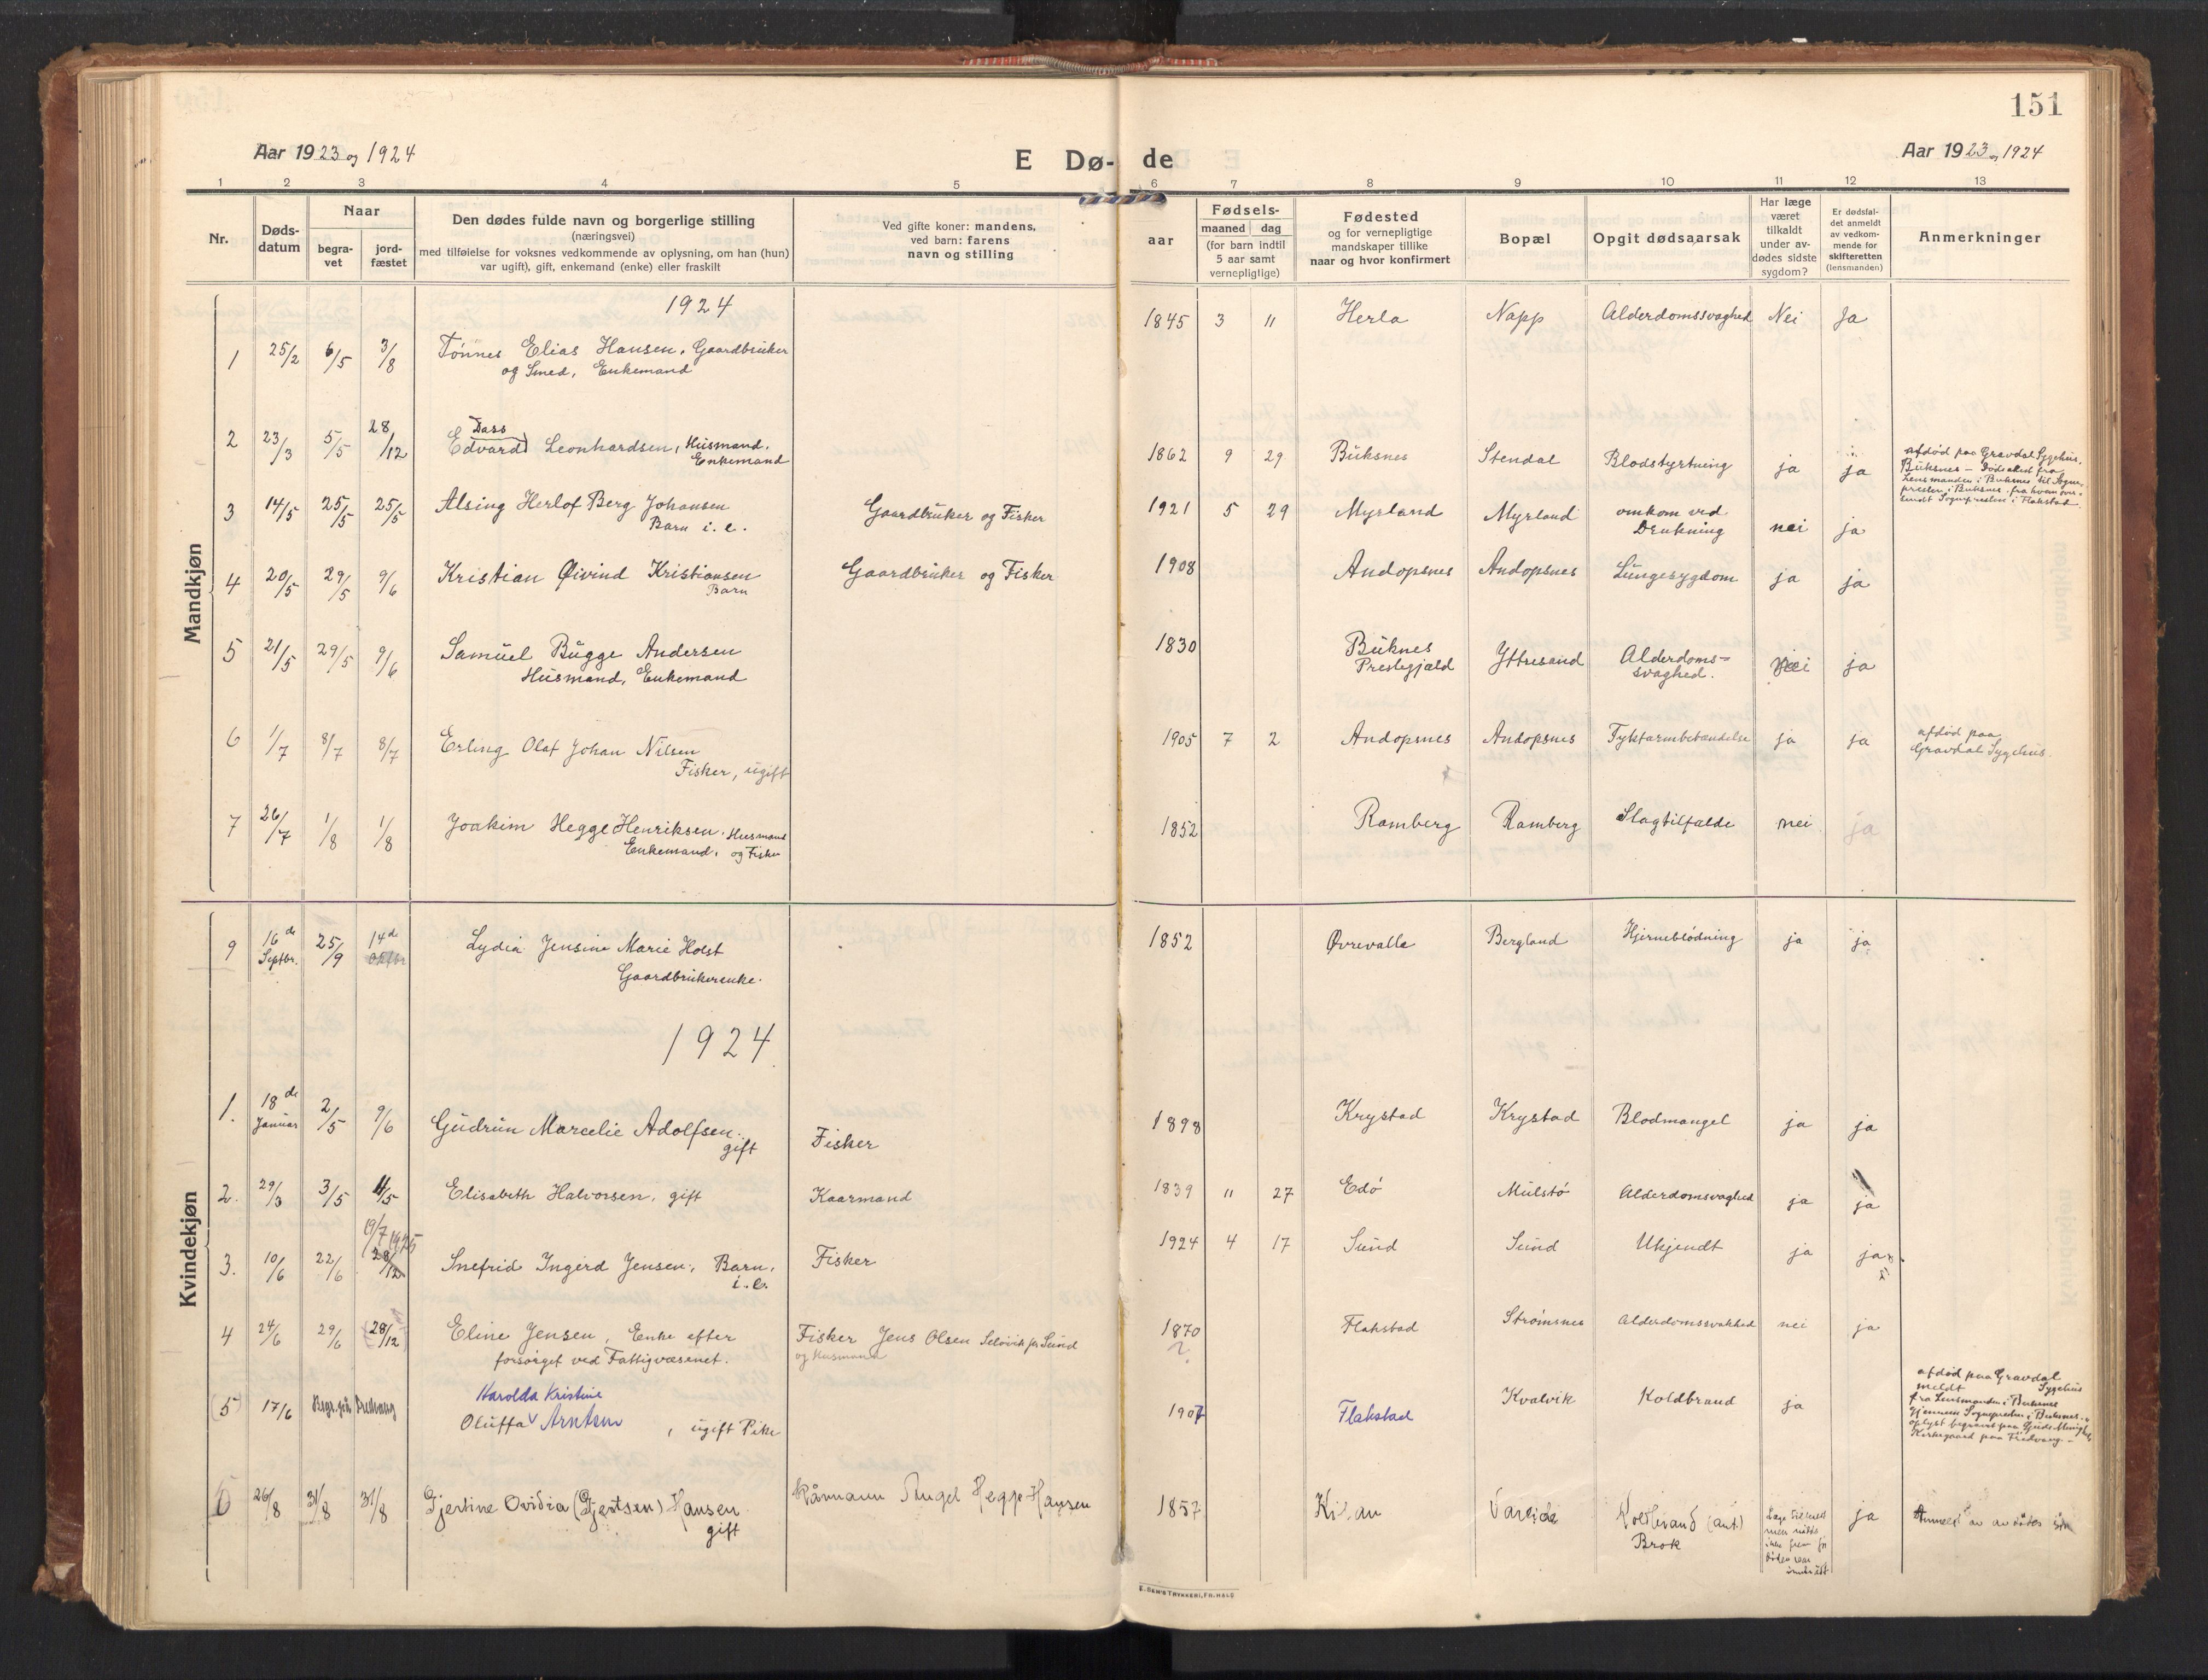 151
Aar 1923 og 1924
E Dø- de
Aar 1923 og 1924
1 2 3 4 5 6 7 8 9 10 11 12 13
Nr.
Døds-
datum
Naar
begra-
vet
jord-
fæstet
Den dødes fulde navn og borgerlige stilling
(næringsvei)
med tilføielse for voksnes vedkommende av oplysning, om han (hun)
var ugift), gift, enkemand (enke) eller fraskilt
Ved gifte koner: mandens,
ved barn: farens
navn og stilling
aar
Fødsels-
maaned dag
(for barn indtil
5 aar samt
vernepligtige)
Fødested
og for vernepligtige
mandskaper tillike
naar og hvor konfirmert
Bopæl
Opgit dødsaarsak
Har læge
været
tilkaldt
under av-
dødes sidste
sygdom?
Er dødsfal-
det anmeldt
av vedkom-
mende for
skifteretten
(lensmanden)
Anmerkninger
Mandkjøn
1924
1 25/2 6/5 3/8 Tønnes Elias Hansen, Gaardbruker
og Smed, Enkemand
1845 3 11 Herla Napp Alderdomssvaghed Nei Ja
2 23/3 5/5 28/12 Edvard Dass Leonhardsen, Husmand,
Enkemand
1862 9 29 Buksnes Stendal Blodstyrtning ja ja
afdød paa Gravdal Sygehus,
Buksnes – Dødsaled fra
Lensmanden i Buksnes til Sogne-
presten i Buksnes, fra hvem over-
sendt Sognepresten i Flakstad
3 14/5 25/5 25/5 Alsing Herlof Berg Johansen
Barn i. e. Gaardbruker og Fisker
1921 5 29 Myrland Myrland omkom ved
Drukning nei ja
4 20/5 29/5 9/6 Kristian Øivind Kristiansen
Barn Gaardbruker og Fisker
1908 Andopsnes Andopsnes Lungesygdom ja ja
5 21/5 29/5 9/6 Samuel Bugge Andersen
Husmand, Enkemand
1830 Buknes
Prestegjæld Yttresand Alderdoms-
svaghed. nei ja
6 1/7 8/7 8/7 Erling Olaf Johan Nilsen
Fisker, ugift
1905 7 2 Andopsnes Andopsnes Tyktarmbetændelse ja ja afdød paa
Gravdal Sygehus.
7 26/7 1/8 1/8 Joakim Hegge Henriksen, Husmand
Enkemand, og Fisker
1852 Ramberg Ramberg Slagtilfælde nei ja
Kvindekjøn
9 16de Septbr. 25/9 14d Oktbr Lydia Jensine Marie Holst
Gaardbrukerenke.
1852 Øvrevalle Bergland Hjerneblødning ja ja
1924
1. 18de Januar 2/5 9/6 Gudrun Marcelie Adolfsen,
gift Fisker
1898 Krystad Krystad Blodmangel ja ja
2. 29/3 3/5 11/5 Elisabeth Halvorsen, gift Kaarmand
1839 11 27 Edø Mulstø Alderdomsvaghed ja ja
19/7 1925
3. 10/6 22/6 28/12 Snefrid Ingerd Jensen, Barn,
i. e. Fisker
1924 4 17 Sund Sund Ukjendt ja ja
4 24/6 29/6 (28/12) Eline Jensen, Enke efter Fisker Jens Olsen Selövik pr Sund
forsørget ved Fattigvæsenet. og Husmand
1870 Flakstad Strømsnes Alderdomssvakhed nei ja
?
(5) 17/6 Begr. på Fredvang Harolda Kristine
Oluffa V Arntsen, ugift Pike
1907 Flakstad Kvalvik Koldbrand ja
afdød paa Gravdal
meldt Sygehus
fra Lensmanden i Buksnes
gjennem Sognepresten i Buksnes.
oplyst begravet paa
Kirkegaard paa Fredvang –
6 26/8 31/8 31/8 Gjertine Ovidia (Gjertsen) Hansen
gift Kårmann Angel Hegge Hansen
1857 Vareide Koldbrand (ant.)
Brok Læge tilkaldt
men nådde
ikke frem før
Døden var
inntrått ja